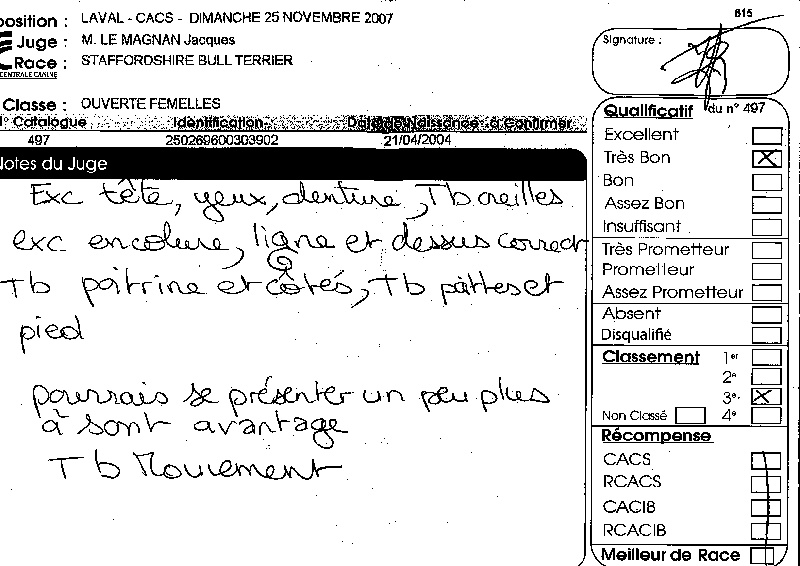 position : LAVAL - CACS - DIMANCHE 25 NOVEMBRE 2007
Juge : M. LE MAGNAN Jacques
Race : STAFFORDSHIRE BULL TERRIER
CENTRALE CANINE
Classe : OUVERTE FEMELLES
Catalogue Identification Date de Naissance à Confirmer
497 250269600303902 21/04/2004
Notes du Juge
Exc tête, yeux, denture, Tb oreilles
exc encolure, ligne et dessus correct
Tb poitrine et côtés, Tb pâttes et
pied
pourrais se présenter un peu plus
à sont avantage
Tb Mouvement
615
Signature :
Qualificatif du n° 497
Excellent
Très Bon X
Bon
Assez Bon
Insuffisant
Très Prometteur
Prometteur
Assez Prometteur
Absent
Disqualifié
Classement 1er
2e
3e X
Non Classé 4e
Récompense
CACS
RCACS
CACIB
RCACIB
Meilleur de Race